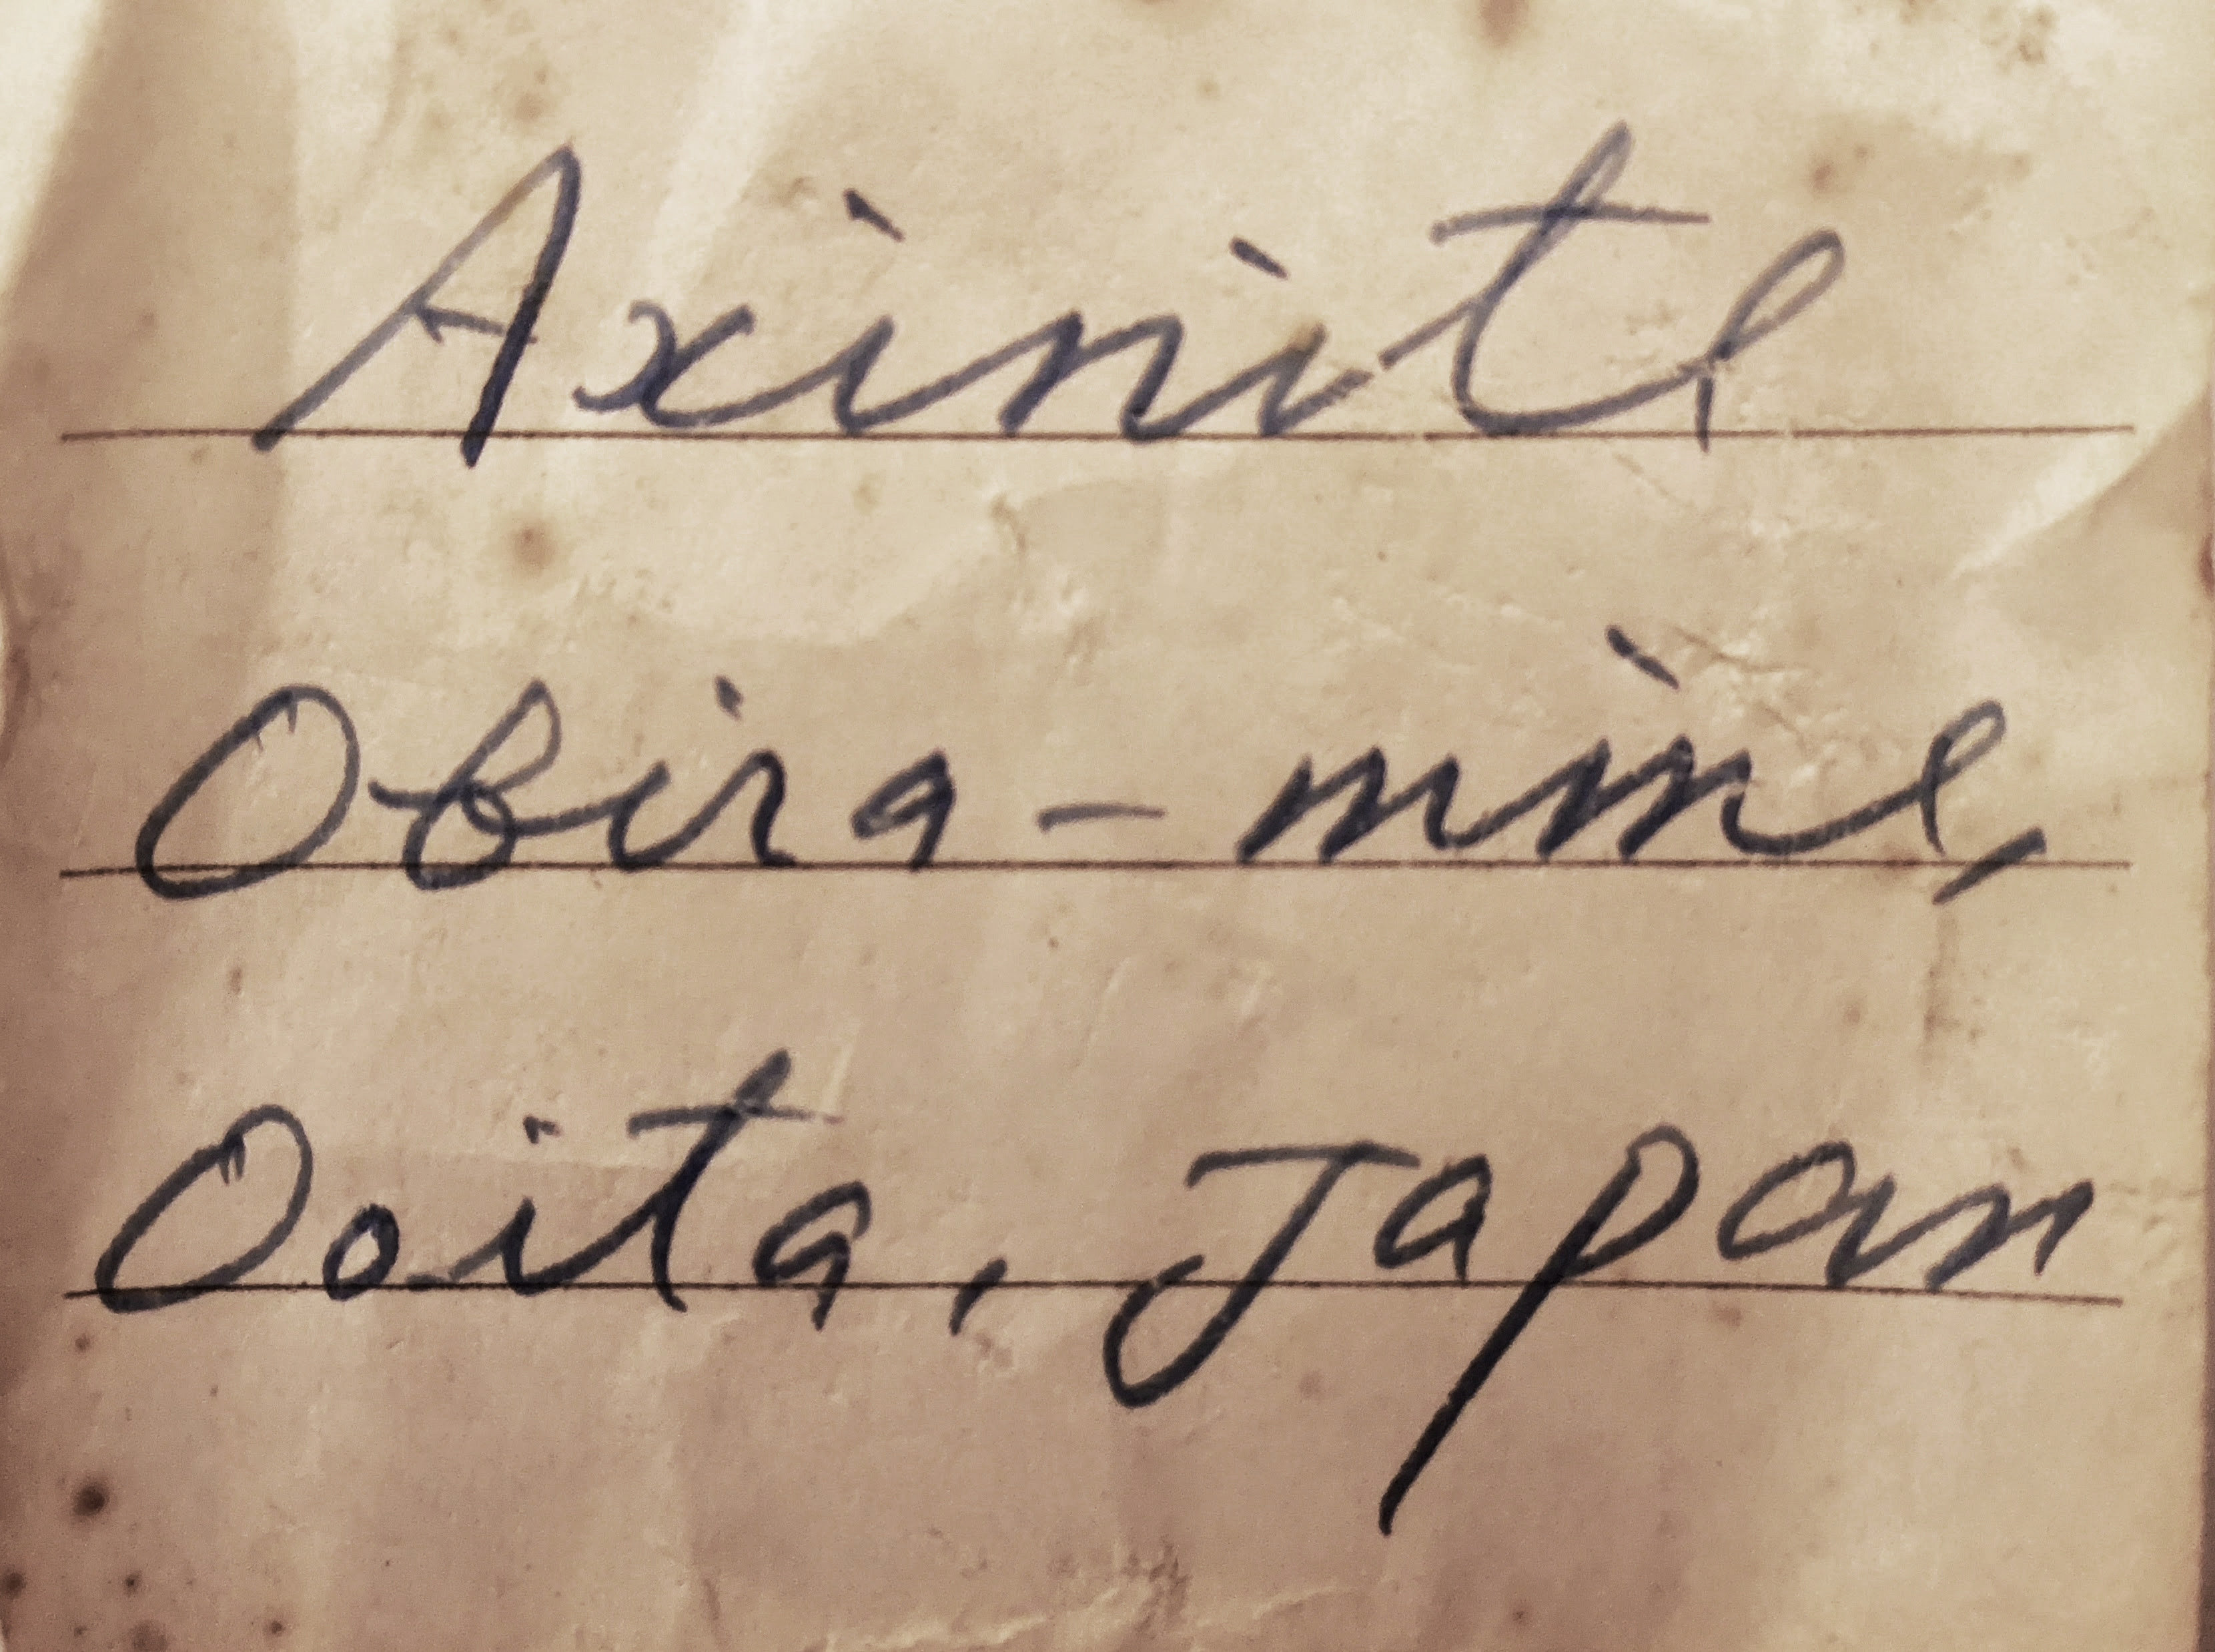 Axinite
Obira-mine,
Ooita, Japan